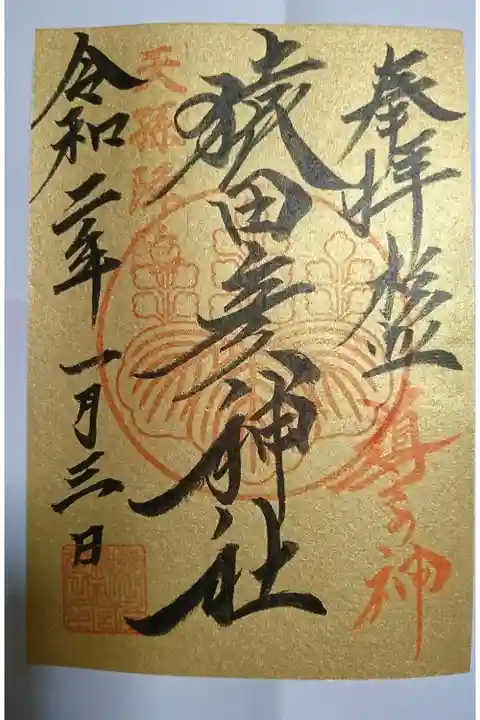 奉拝 杉並 導きの神
猿田彦神社
天孫降臨
令和二年一月三日